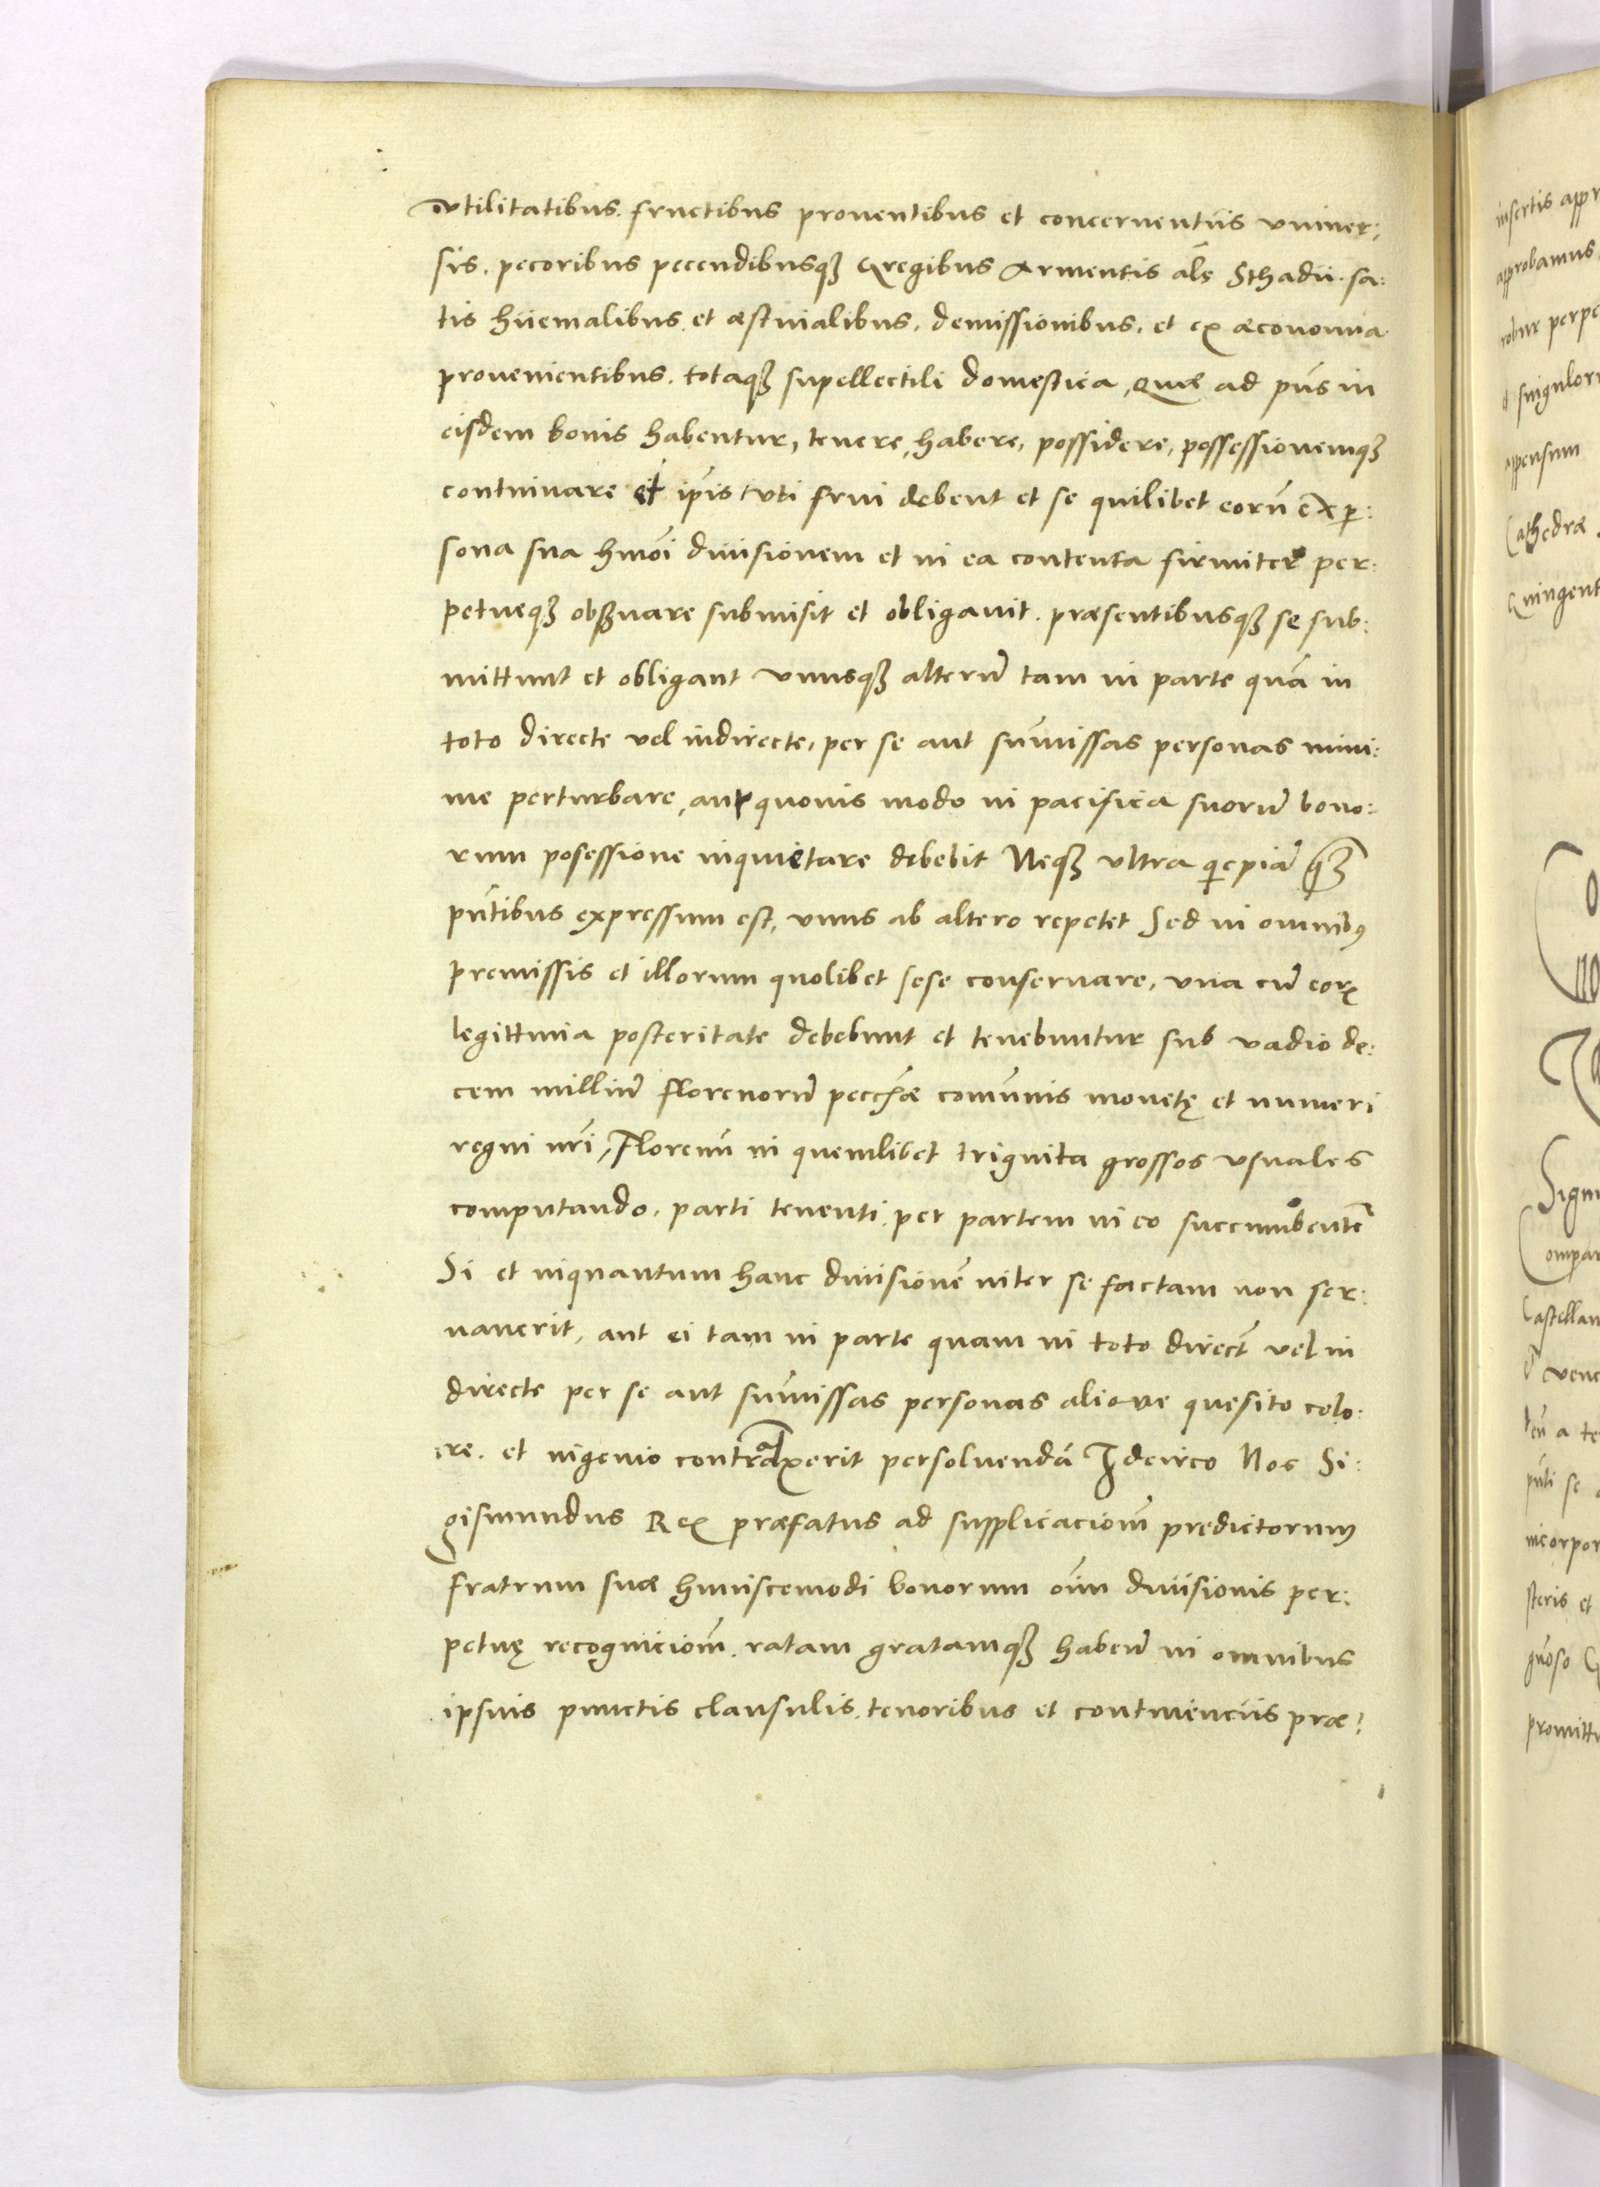 Vtilitatibus. fructibus prouentibus et concernentiis vniuer:
sis. pecoribus pecendibusqꝫ Gregibus Armentis als Sthadii. sa:
tis hiiemalibus et æstiuialibus. demissionibus. et ex æconomia
prouenientibus. totaqꝫ supellectili domestica, quæ ad pūs in
eisdem bonis habentur, tenere, habere, possidere, possessionemqꝫ
continuare et ip̄is vti frui debent et se quilibet eorū ex p̱:
sona sua hmōi diuisionem et in ea contenta firmiter per:
petueqꝫ obseruare submisit et obligauit. præsentibusqꝫ se sub:
mittunt et obligant vnusqꝫ alterū tam in parte quā in
toto directe vel indirecte, per se aut sum̄issas personas mini:
me perturbare, aut quouis modo in pacifica suorū bono:
rum posessione inquietare debebit Neqꝫ vltra qͥcpiā qꝫ
pn̄tibus expressum est, vnus ab altero repetet Sed in omnibꝰ
premissis et illorum quolibet sese conseruare, vna cū eorꝝ
legittimia posteritate debebunt et tenebuntur sub vadio de:
cem milliū florenorū pecc̄hæ com̄unis monetę et numeri
regni nr̄i, Florenū in quemlibet triginta grossos vsuales
computando, parti tenenti. per partem in eo succumbentē
Si et inquantum hanc diuisionē inter se factam non ser:
uauerit, aut ei tam in parte quam in toto direct̄ vel in
directe per se aut sum̄issas personas alioue quęsito colo:
re. et ingenio contraxerit persoluendā Idcirco Nos Si:
gismundus Rex præfatus ad supplicaciom̄ predictorum
fratrum suæ huiuscemodi bonorum om̄m diuisionis per:
petuę recogniciom̄. ratam gratamqꝫ habeñ in omnibus
ipsius punctis clausulis. tenoribus et continenciis præ:
insertis appr
approbamus
robur perpe
singulor
appensum
Cathedræ
Quingent
Sigm
Compar
Castellan
vene
a te
pn̄ti se
incorpor
steris et
promitt